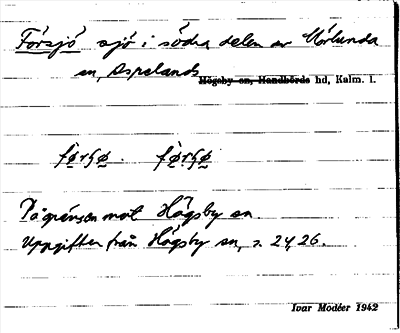 Försjö sjö i södra delen av Mörlunda
sn, Aspelands Högsby sn, Handbörds hd, Kalm. l.
På gränsen mot Högsby sn.
Uppgiften från Högsby sn, s. 24, 26.
Ivar Modéer 1942